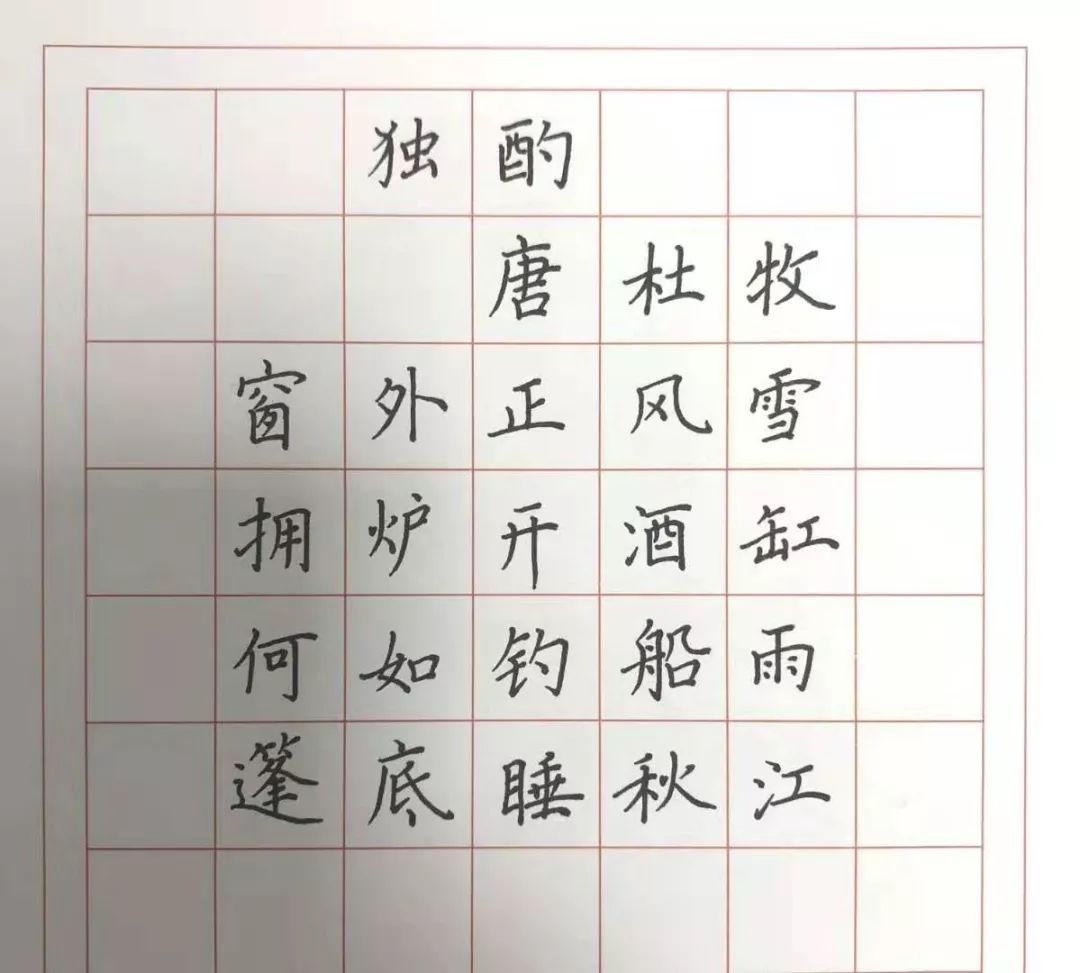 独酌
唐杜牧
窗外正风雪
拥炉开酒缸
何如钓船雨
篷底睡秋江